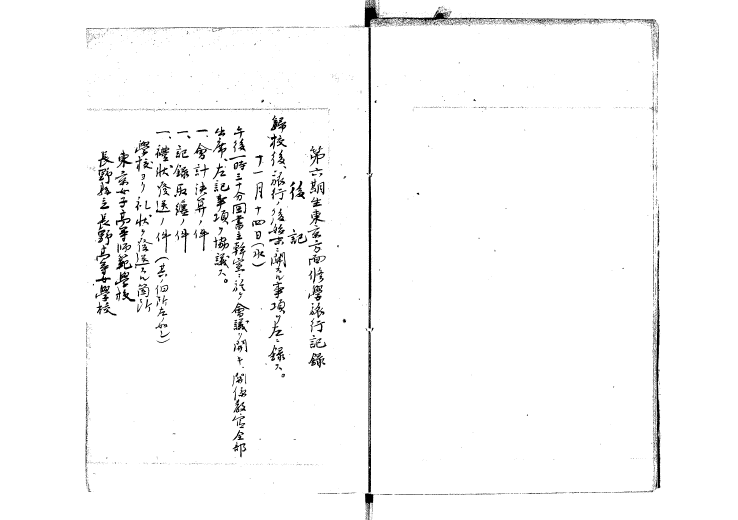 第六期生東京方面修學旅行記録
後記
歸校後、旅行ノ後始末ニ關スル事項ヲ左ニ録ス。
十一月十四日(水)
午後一時三十分圖書主幹室ニ於テ會議ヲ開キ、関係教官全部
出席、左記事項ヲ協議ス。
一、會計決算ノ件
一、記録取纏ノ件
一、禮状發送ノ件(其ノ個所左ノ如シ)
學校ヨリ礼状ヲ發送スル箇所
東京女子高等師範學校
長野縣立長野高等女學校